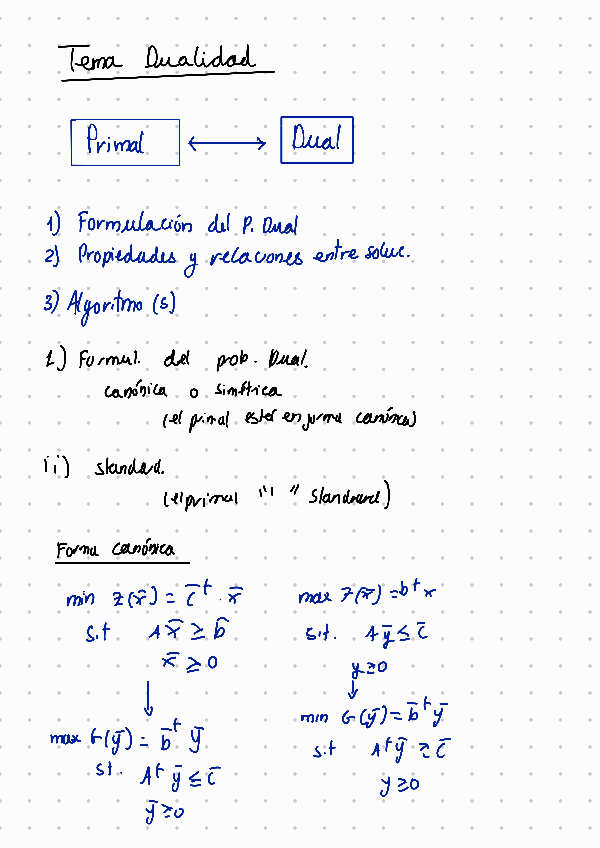 Tema Dualidad
Primal ⟷ Dual
1) Formulación del P. Dual
2) Propiedades y relaciones entre soluc.
3) Algoritmo (s)
1) Formul. del prob. Dual.
canónica o simétrica
(el primal está en forma canónica)
ii) standard.
(el primal " " standard)
Forma canónica
min Z(x̄) = c̄ᵗ · x̄
s.t A x̄ ≥ b̄
x̄ ≥ 0
↓
max G(ȳ) = b̄ᵗ ȳ
s.t. Aᵗ ȳ ≤ c̄
ȳ ≥ 0
max Z(x̄) = bᵗ x
s.t. A ȳ ≤ c̄
y ≥ 0
↓
min G(ȳ) = b̄ᵗ ȳ
s.t Aᵗ ȳ ≥ c̄
y ≥ 0